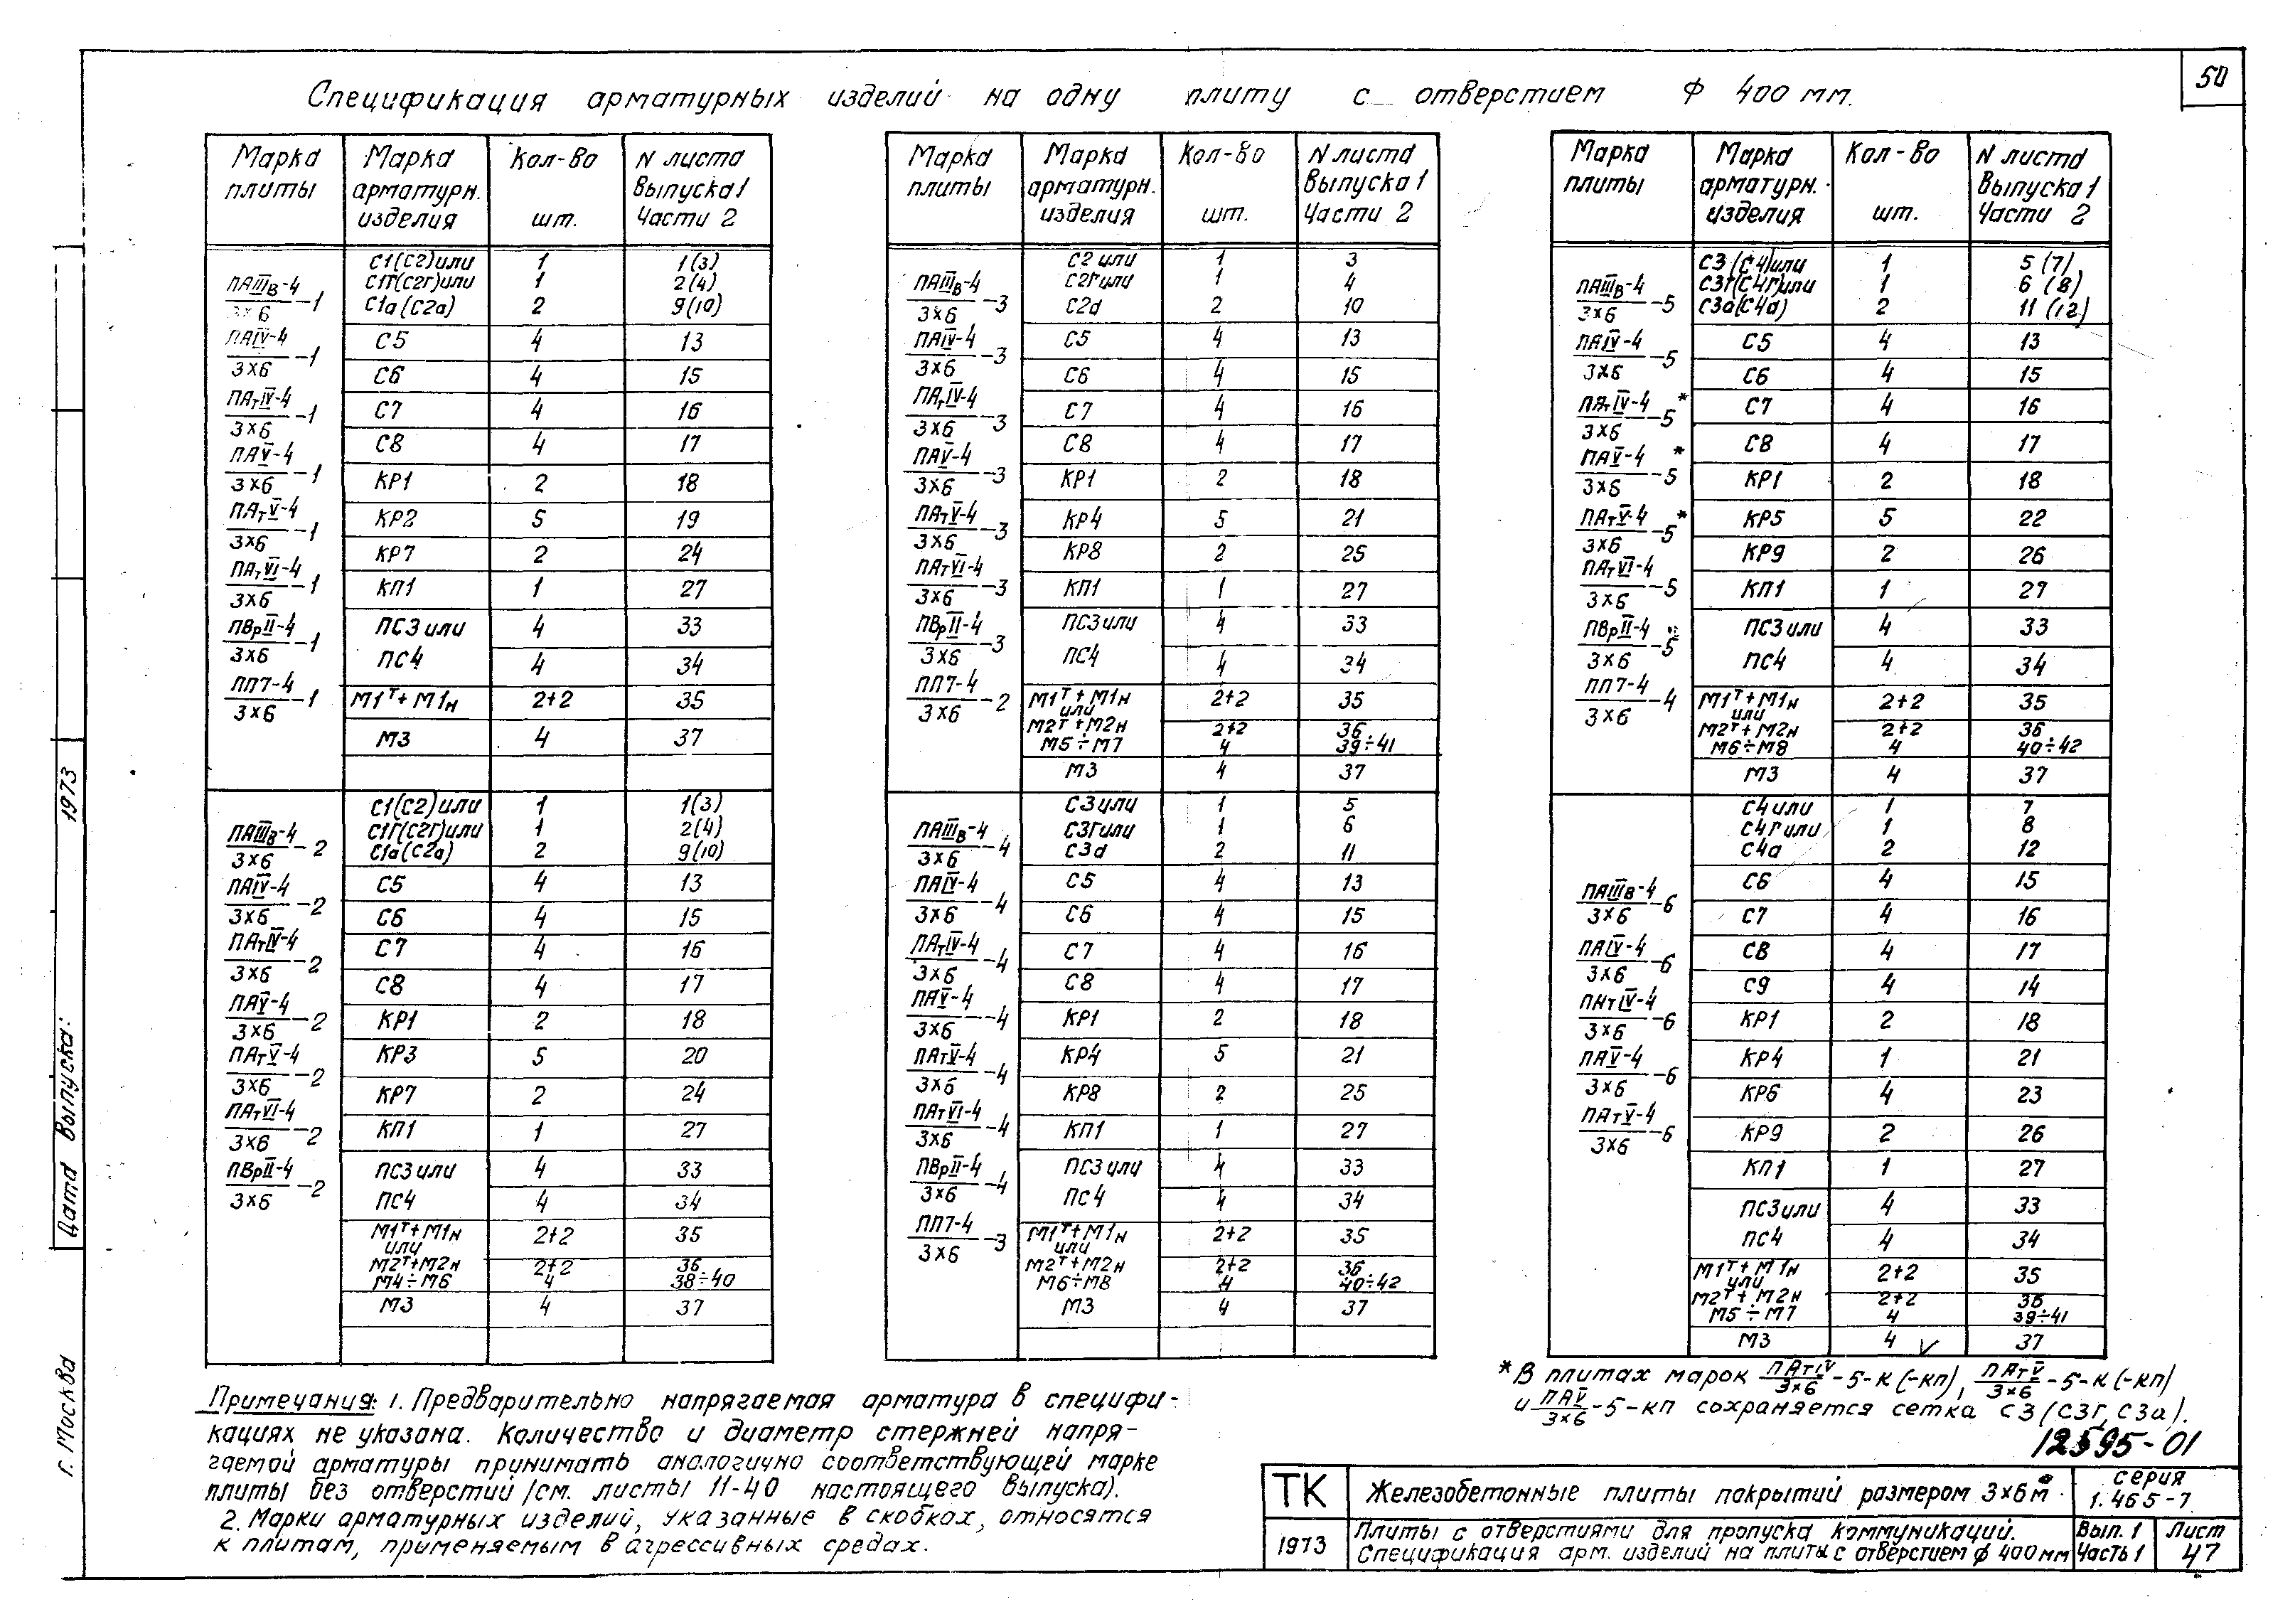 50
Спецификация арматурных изделий на одну плиту с отверстием Ф 400 мм.
Марка плиты | Марка арматурн. изделия | Кол-во шт. | N листа Выпуска 1 Части 2
ПАIIIв-4/3×6 -1
ПАIV-4/3×6 -1
ПАтIV-4/3×6 -1
ПАV-4/3×6 -1
ПАтV-4/3×6 -1
ПАтVI-4/3×6 -1
ПВрII-4/3×6 -1
ПП7-4/3×6 -1
С1(С2)или 1 1(3)
С1Г(С2г)или 1 2(4)
С1а(С2а) 2 9(10)
С5 4 13
С6 4 15
С7 4 16
С8 4 17
КР1 2 18
КР2 5 19
КР7 2 24
КП1 1 27
ПС3 или 4 33
ПС4 4 34
М1т+М1н 2+2 35
М3 4 37
ПАIIIв-4/3×6 -2
ПАIV-4/3×6 -2
ПАтIV-4/3×6 -2
ПАV-4/3×6 -2
ПАтV-4/3×6 -2
ПАтVI-4/3×6 -2
ПВрII-4/3×6 -2
С1(С2)или 1 1(3)
С1Г(С2г)или 1 2(4)
С1а(С2а) 2 9(10)
С5 4 13
С6 4 15
С7 4 16
С8 4 17
КР1 2 18
КР3 5 20
КР7 2 24
КП1 1 27
ПС3 или 4 33
ПС4 4 34
М1т+М1н 2+2 35
или
М2т+М2н 2+2 36
М4÷М6 4 38÷40
М3 4 37
Марка плиты | Марка арматурн. изделия | Кол-во шт. | N листа Выпуска 1 Части 2
ПАIIIв-4/3×6 -3
ПАIV-4/3×6 -3
ПАтIV-4/3×6 -3
ПАV-4/3×6 -3
ПАтV-4/3×6 -3
ПАтVI-4/3×6 -3
ПВрII-4/3×6 -3
ПП7-4/3×6 -2
С2 или 1 3
С2Г или 1 4
С2а 2 10
С5 4 13
С6 4 15
С7 4 16
С8 4 17
КР1 2 18
КР4 5 21
КР8 2 25
КП1 1 27
ПС3 или 4 33
ПС4 4 34
М1т+М1н 2+2 35
или
М2т+М2н 2+2 36
М5÷М7 4 39÷41
М3 4 37
ПАIIIв-4/3×6 -4
ПАIV-4/3×6 -4
ПАтIV-4/3×6 -4
ПАV-4/3×6 -4
ПАтV-4/3×6 -4
ПАтVI-4/3×6 -4
ПВрII-4/3×6 -4
ПП7-4/3×6 -3
С3 или 1 5
С3Г или 1 6
С3а 2 11
С5 4 13
С6 4 15
С7 4 16
С8 4 17
КР1 2 18
КР4 5 21
КР8 2 25
КП1 1 27
ПС3 или 4 33
ПС4 4 34
М1т+М1н 2+2 35
или
М2т+М2н 2+2 36
М6÷М8 4 40÷42
М3 4 37
Марка плиты | Марка арматурн. изделия | Кол-во шт. | N листа Выпуска 1 Части 2
ПАIIIв-4/3×6 -5
ПАIV-4/3×6 -5
ПАтIV-4/3×6 -5*
ПАV-4/3×6 -5*
ПАтV-4/3×6 -5*
ПАтVI-4/3×6 -5
ПВрII-4/3×6 -5
ПП7-4/3×6 -4
С3(С4)или 1 5(7)
С3г(С4г)или 1 6(8)
С3а(С4а) 2 11(12)
С5 4 13
С6 4 15
С7 4 16
С8 4 17
КР1 2 18
КР5 5 22
КР9 2 26
КП1 1 27
ПС3 или 4 33
ПС4 4 34
М1т+М1н 2+2 35
или
М2т+М2н 2+2 36
М6÷М8 4 40÷42
М3 4 37
ПАIIIв-4/3×6 -6
ПАIV-4/3×6 -6
ПАтIV-4/3×6 -6
ПАV-4/3×6 -6
ПАтV-4/3×6 -6
С4 или 1 7
С4Г или 1 8
С4а 2 12
С6 4 15
С7 4 16
С8 4 17
С9 4 14
КР1 2 18
КР4 1 21
КР6 4 23
КР9 2 26
КП1 1 27
ПС3 или 4 33
ПС4 4 34
М1т+М1н 2+2 35
или
М2т+М2н 2+2 36
М5÷М7 4 39÷41
М3 4 37
Примечания: 1. Предварительно напрягаемая арматура в специфи-
кациях не указана. Количество и диаметр стержней напря-
гаемой арматуры принимать аналогично соответствующей марке
плиты без отверстий (см. листы 11-40 настоящего выпуска).
2. Марки арматурных изделий, указанные в скобках, относятся
к плитам, применяемым в агрессивных средах.
* В плитах марок ПАтIV/3×6 -5-К (-КП), ПАтV/3×6 -5-К (-КП)
и ПАV/3×6 -5-КП сохраняется сетка С3 (С3Г, С3а).
12595-01
ТК
1973
Железобетонные плиты покрытий размером 3×6м
серия
1.465-7
Плиты с отверстиями для пропуска коммуникаций.
Спецификация арм. изделий на плиты с отверстием ф 400 мм
Вып. 1
Часть 1
Лист
47
г. Москва
Дата выпуска:
1973